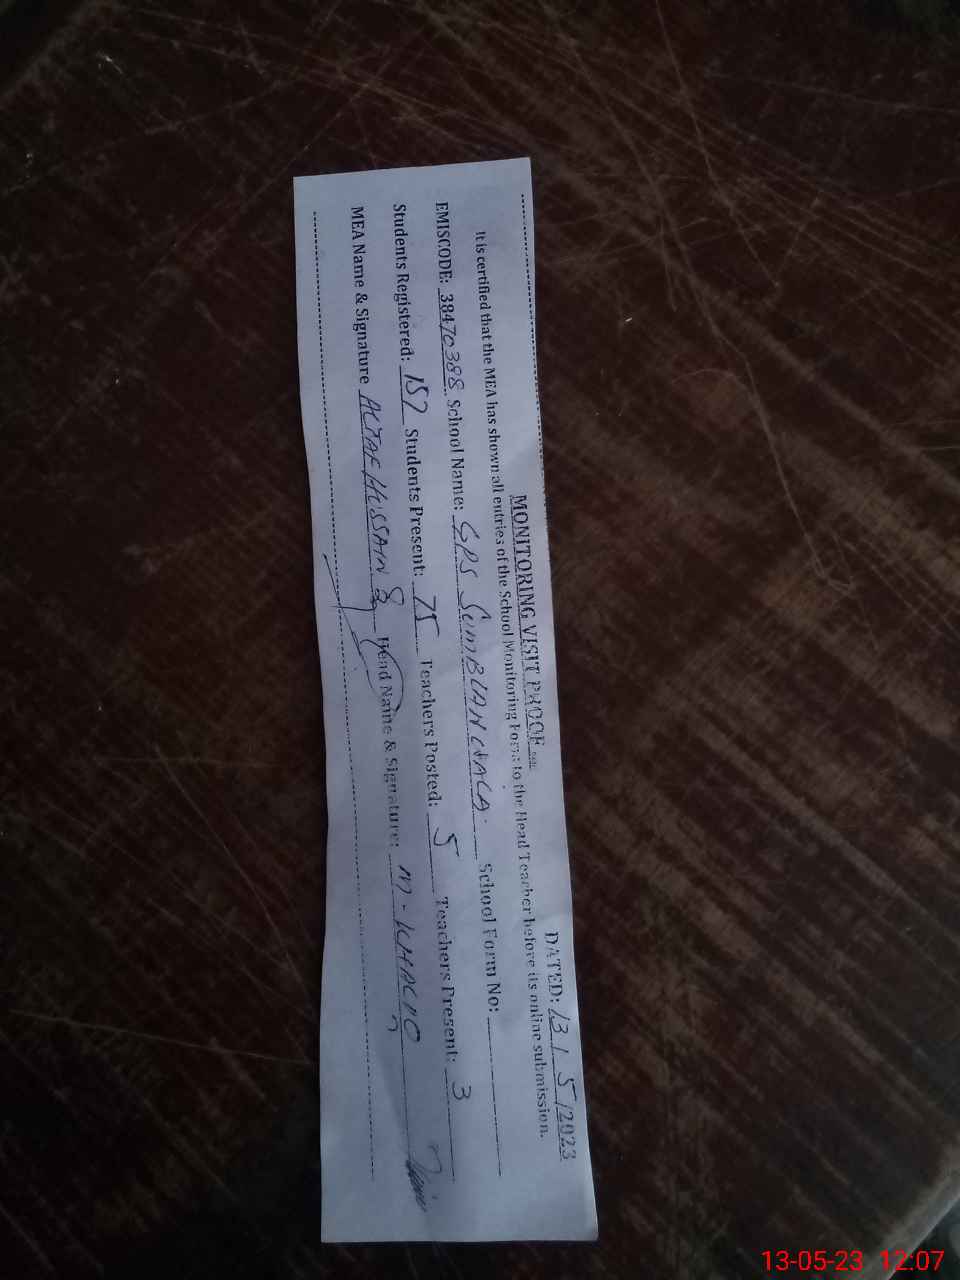 MONITORING VISIT PROOF
DATED: 13 / 5 /2023
It is certified that the MEA has shown all entries of the School Monitoring Form to the Head Teacher before its online submission.
EMISCODE: 38470388 School Name: GPS SUMBLANWALA School Form No:
Students Registered: 157 Students Present: 75 Teachers Posted: 5 Teachers Present: 3
MEA Name & Signature ALTAF HUSSAIN Head Name & Signature: M-KHALID
13-05-23 12:07